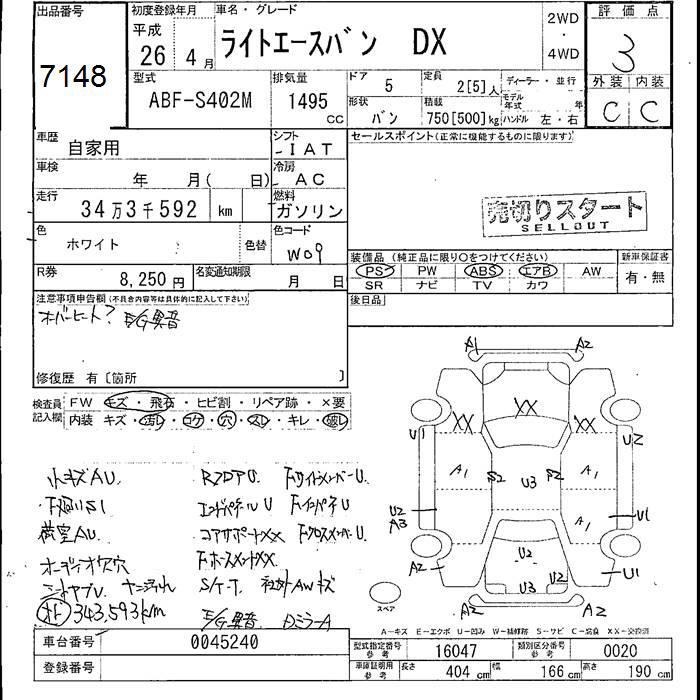 出品番号
7148
初度登録年月 車名・グレード
平成 26 4月
ライトエースバン DX
2WD・4WD
評価点
3
外装 内装
C C
型式 排気量 ドア 5 定員 2[5]人 ディーラー・並行
ABF-S402M 1495 CC
形状 バン 積載 750[500]kg モデル年式 年 ハンドル 左・右
車歴 自家用 シフト -IAT
セールスポイント(正常に機能するものに限ります)
車検 年 月( 日) 冷房 -AC
走行 34万3千592 km 燃料 ガソリン
売切りスタート
SELLOUT
色 ホワイト 色替 色コード W09
装備品(純正品に限り○をつけてください) 新車保証書
PS PW ABS エアB AW 有・無
SR ナビ TV カワ
R券 8,250円 名変通知期限 月 日
後日品
注意事項申告欄(不具合内容等は具体的に記入して下さい)
オーバーヒート? E/G異音
修復歴 有〔箇所 〕
検査員記入欄
FW キズ・飛石・ヒビ割・リペア跡・×要
内装 キズ・汚レ・コゲ・穴・スレ・キレ・破レ
小キズAU.
下廻りS1
荷室AU.
オーディオ穴
オド 343,593km
エンドパネルU
コアサポートXX
S/ケース 社外AWキズ
E/G異音 DミラーA
A1 A2
XX XX XX
U1 U2
A1 S2 U3 S2 A1
U2 A3 A1 U1
A2 U2 U3 U2 U1
A2 A2
スペア
A-キズ E-エクボ U-凹み W-補修跡 S-サビ C-腐食 XX-交換済
車台番号 0045240
登録番号
型式指定番号 参考 16047 類別区分番号 参考 0020
車庫証明用 参考 長さ 404 cm 幅 166 cm 高さ 190 cm